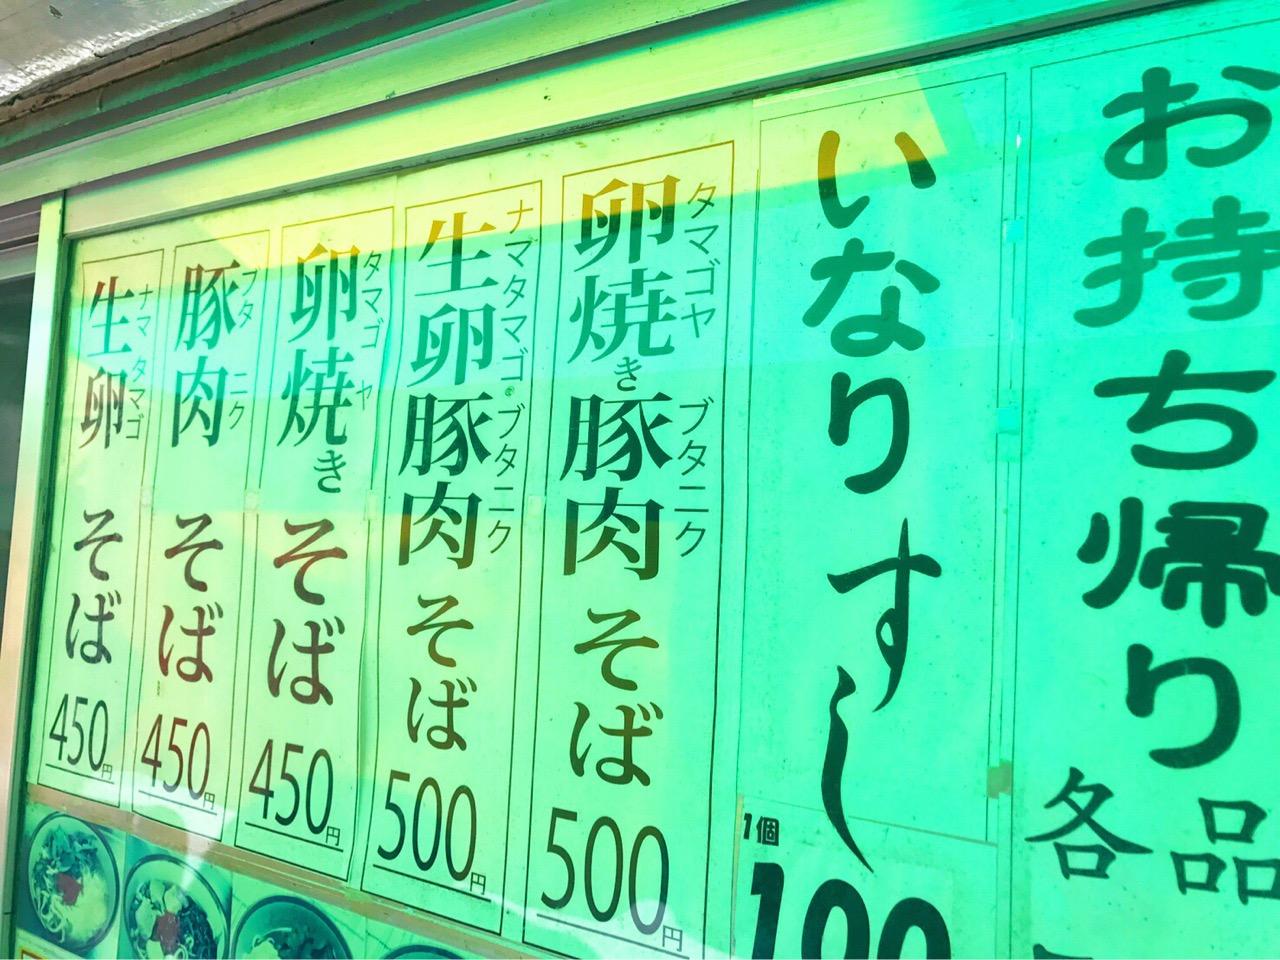 お持ち帰り
各品
いなりすし
1個
100
卵焼き豚肉そば
タマゴヤ
ブタニク
500円
生卵豚肉そば
ナマタマゴ・ブタニク
500円
卵焼きそば
タマゴヤ
450円
豚肉そば
ブタニク
450円
生卵そば
ナマタマゴ
450円